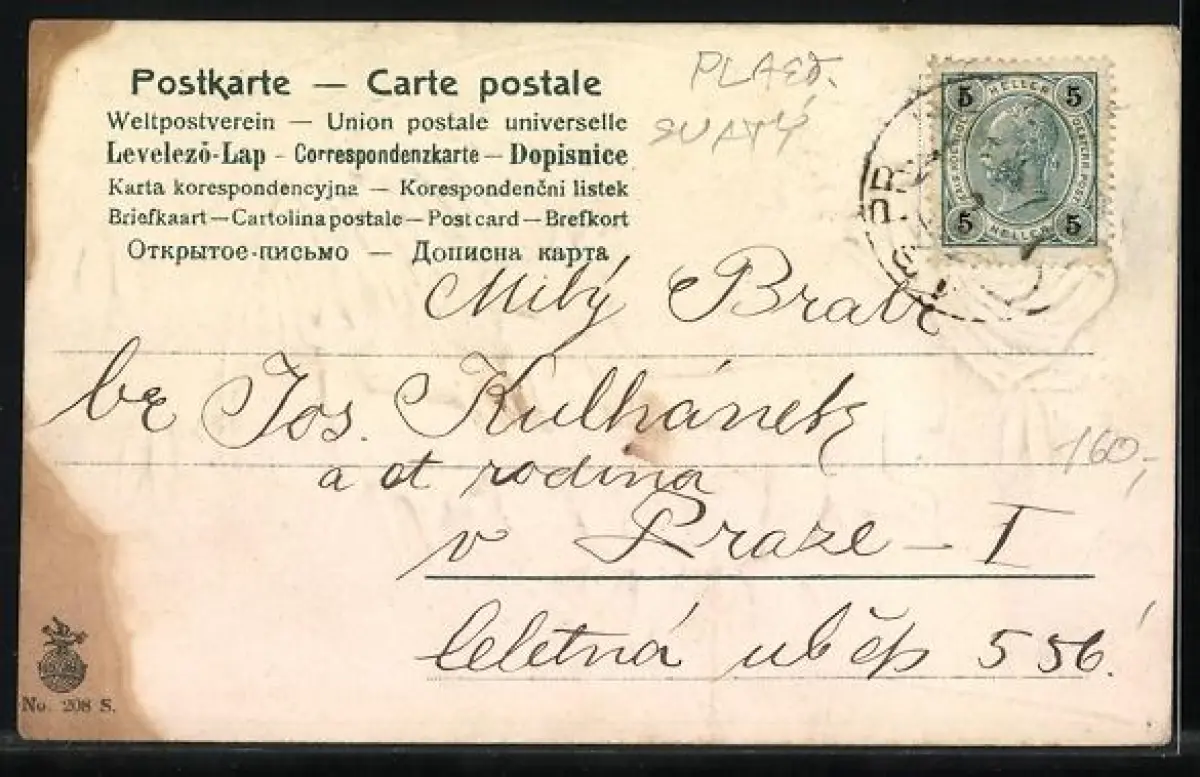 Postkarte — Carte postale
Weltpostverein — Union postale universelle
Levelező-Lap - Correspondenzkarte — Dopisnice
Karta korespondencyjna — Korespondenční listek
Briefkaart — Cartolina postale — Post card — Brefkort
Открытое-письмо — Дописна карта
SVATÝ
5 HELLER 5
5 HELLER 5
Milý
Jos. Kulhánek
a ct rodina
160,-
v Praze — I
Celetná ul čp 556
No. 208 S.